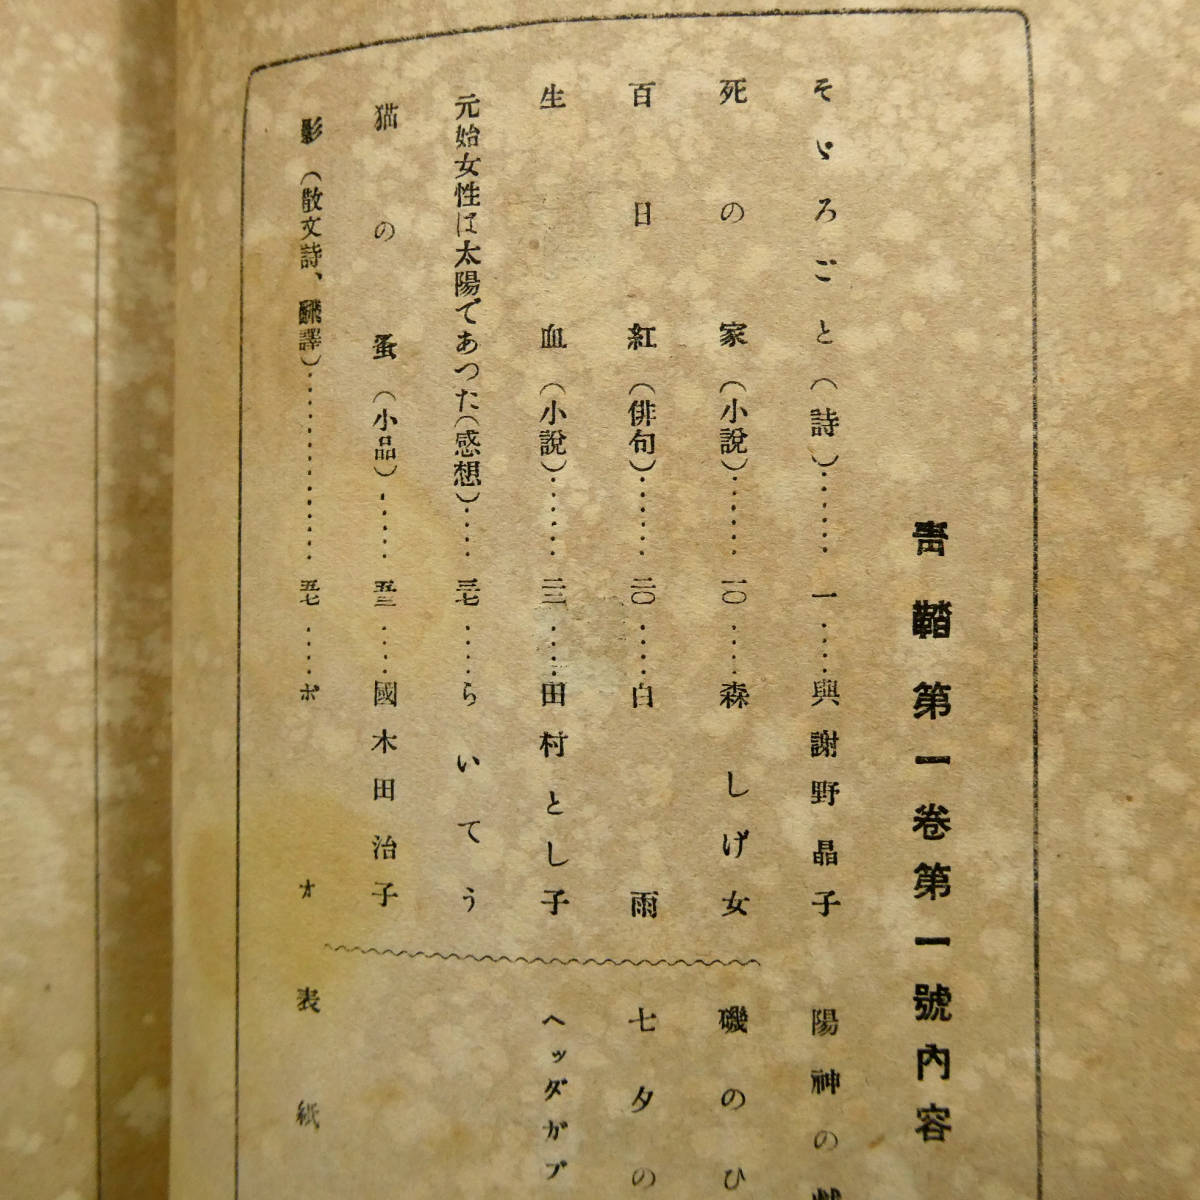 靑鞜第一卷第一號內容
そゞろごと（詩）……一……與謝野晶子
死の家（小說）……一〇……森しげ女
百日紅（俳句）……二〇……白雨
生血（小說）……二三……田村とし子
元始女性は太陽であつた（感想）……三七……らいてう
猫の蚤（小品）……五三……國木田治子
影（散文詩、飜譯）……五七……ポオ
陽神の戲
磯のひ
七夕の
ヘッダガブ
表紙